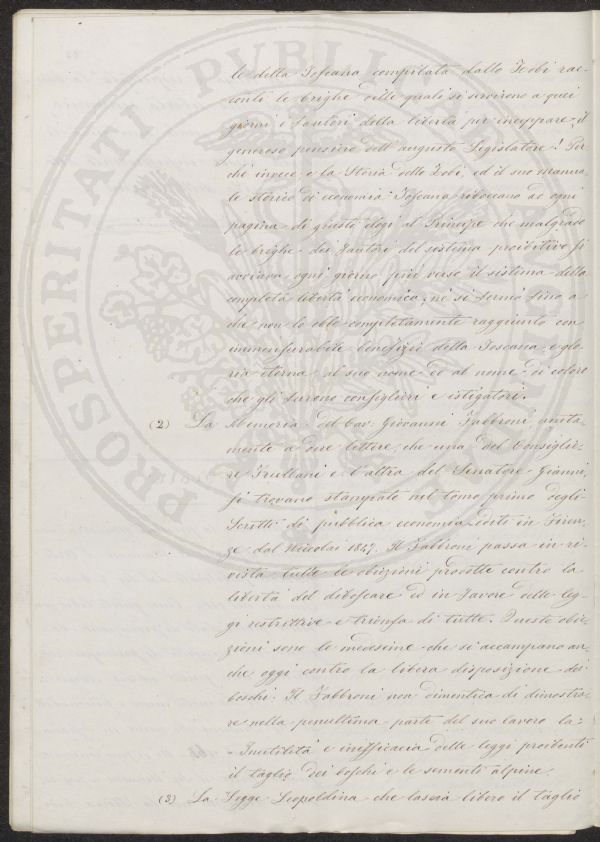 le della Toscana compilata dallo Zobi rac-
conti le brighe delle quali si servirono a quei
giorni i fautori della liberta per inceppare il
generoso pensiero dell'augusto Legislatore! Per
chè invece e la Storia dello Zobi, ed il suo manua
le storico di economia Toscana riboccano ad ogni
pagina di giusti elogi al Principe che malgrado
le brighe dei fautori del sistema proibitivo si
avviava ogni giorno più verso il sistema della
completa libertà economica, nè si fermò fino a
che non lo ebbe completamente raggiunto con
immensurabile benefizio della Toscana e glo
ria eterna al suo nome ed al nome di coloro
che gli furono consiglieri e istigatori.
(2) La Memoria del Cav: Giovanni Fabbroni unita-
mente a due lettere, che una del Consiglie-
re Frullani e l'altra del Senatore Gianni,
si trovano stampate nel tomo primo degli
Scritti di pubblica economia editi in Firen-
ze dal Niccolai 1847. Il Fabbroni passa in ri-
vista tutte le obiezioni prodotte contro la
libertà del diboscare ed in favore delle leg-
gi restrittive e trionfa di tutte. Queste obie-
zioni sono le medesime che si accampano an-
che oggi contro la libera disposizione dei
boschi. Il Fabbroni non dimentica di dimostra-
re nella penultima parte del suo lavoro la=
- Inutilità e inefficacia delle leggi proibenti
il taglio dei boschi e le sementi alpine.
(3) La Legge Leopoldina che lascia libero il taglio
PROSPERITATI PVBLI